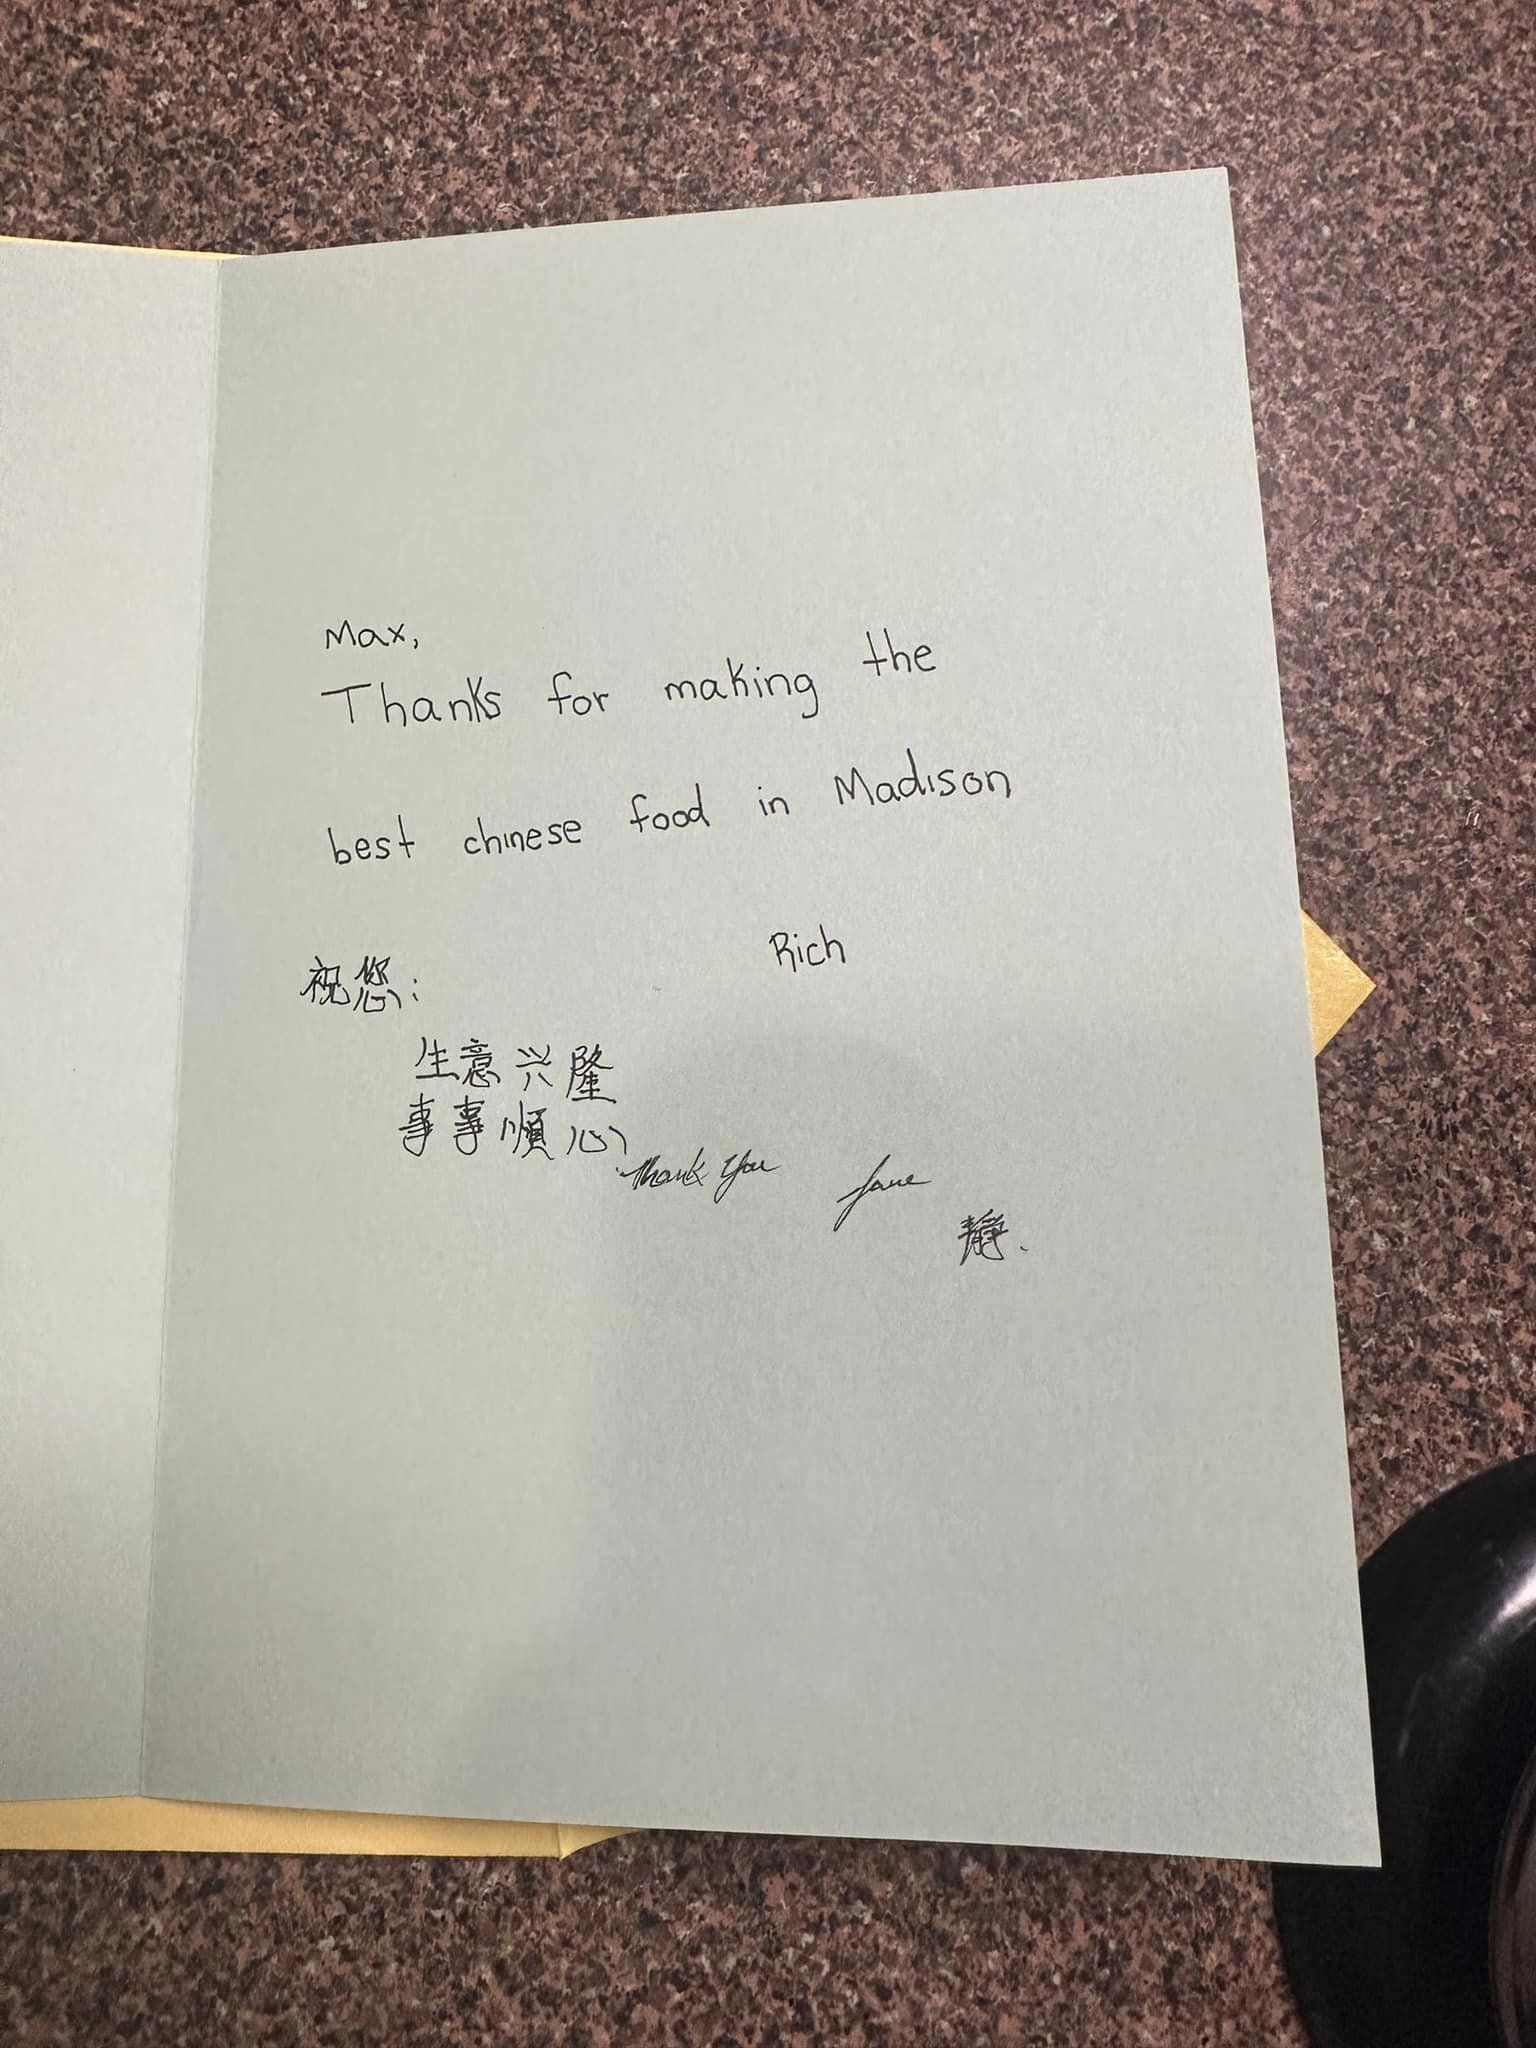 Max,
Thanks for making the
best chinese food in Madison
Rich
祝您:
生意兴隆
事事順心
Thank You Jane
靜.